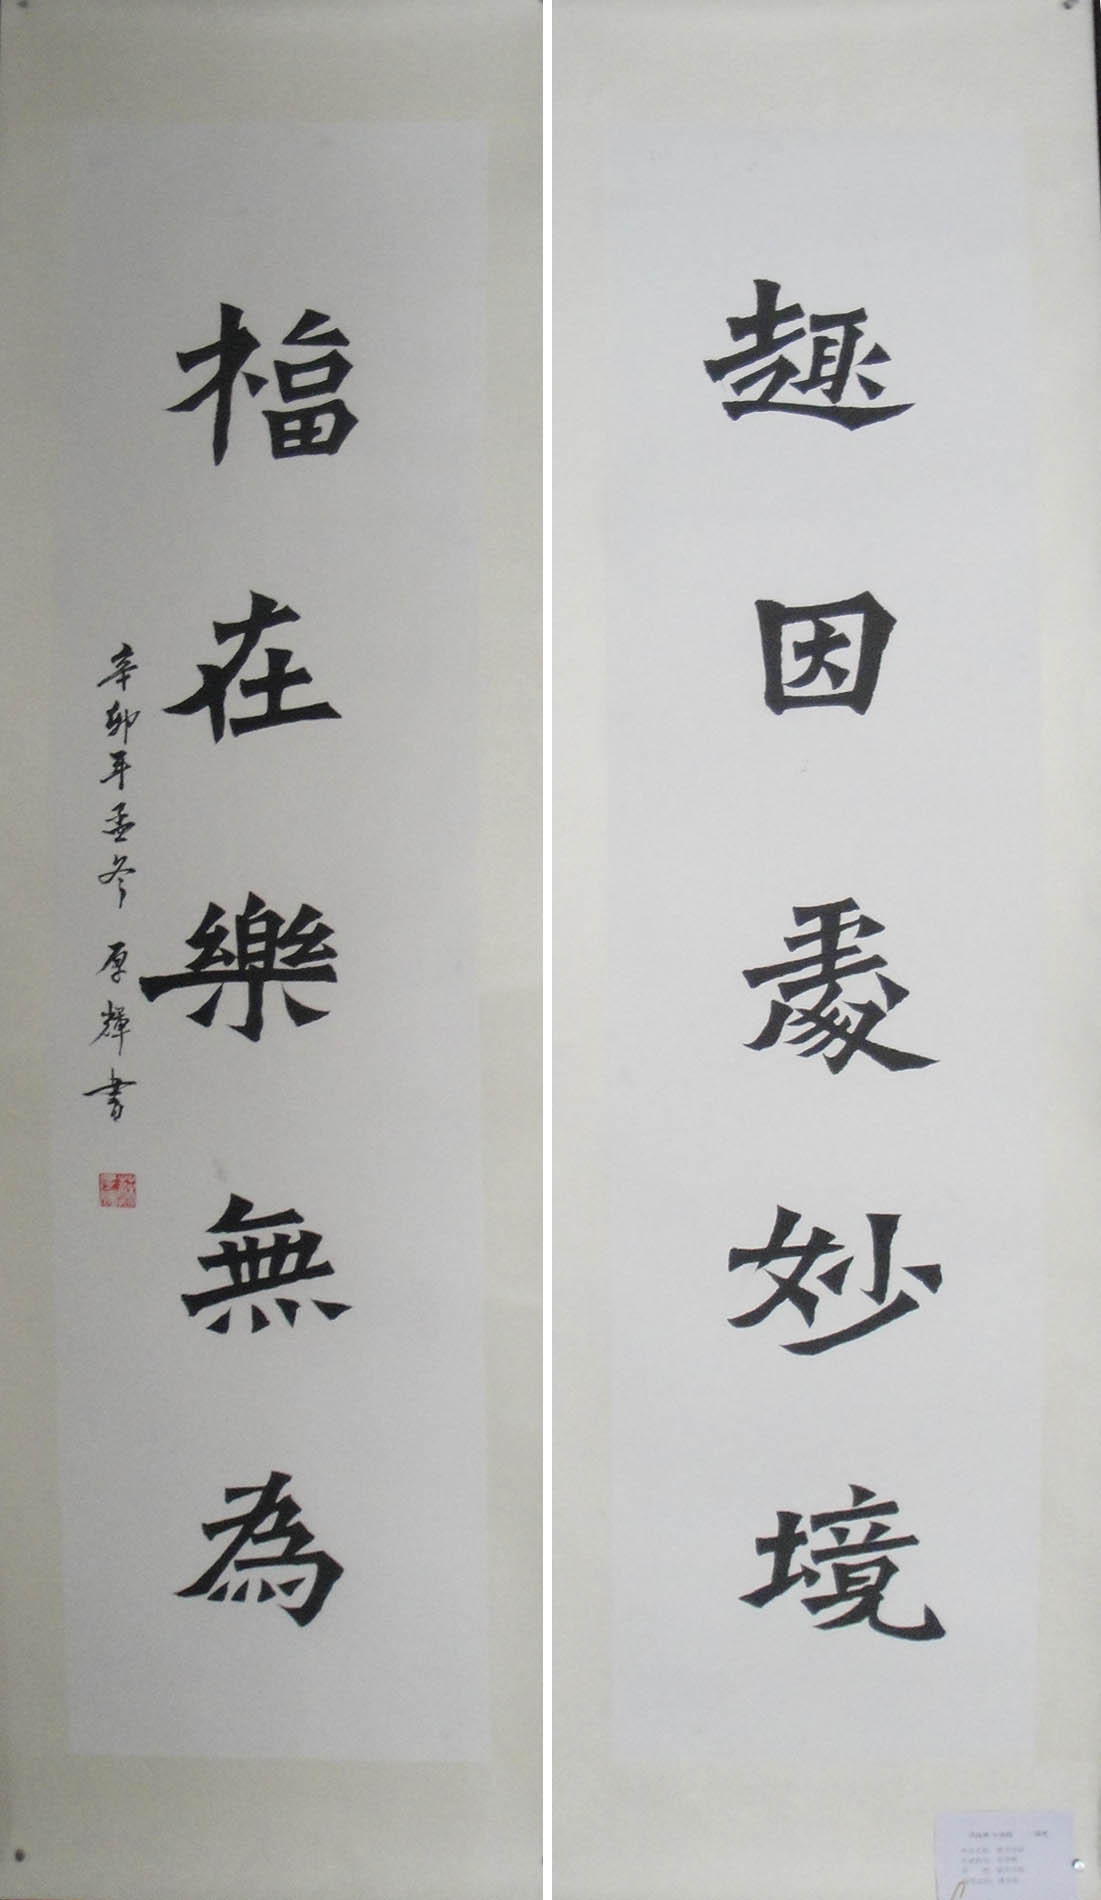 趣因處妙境
福在樂無為
辛卯年孟冬 厚輝書